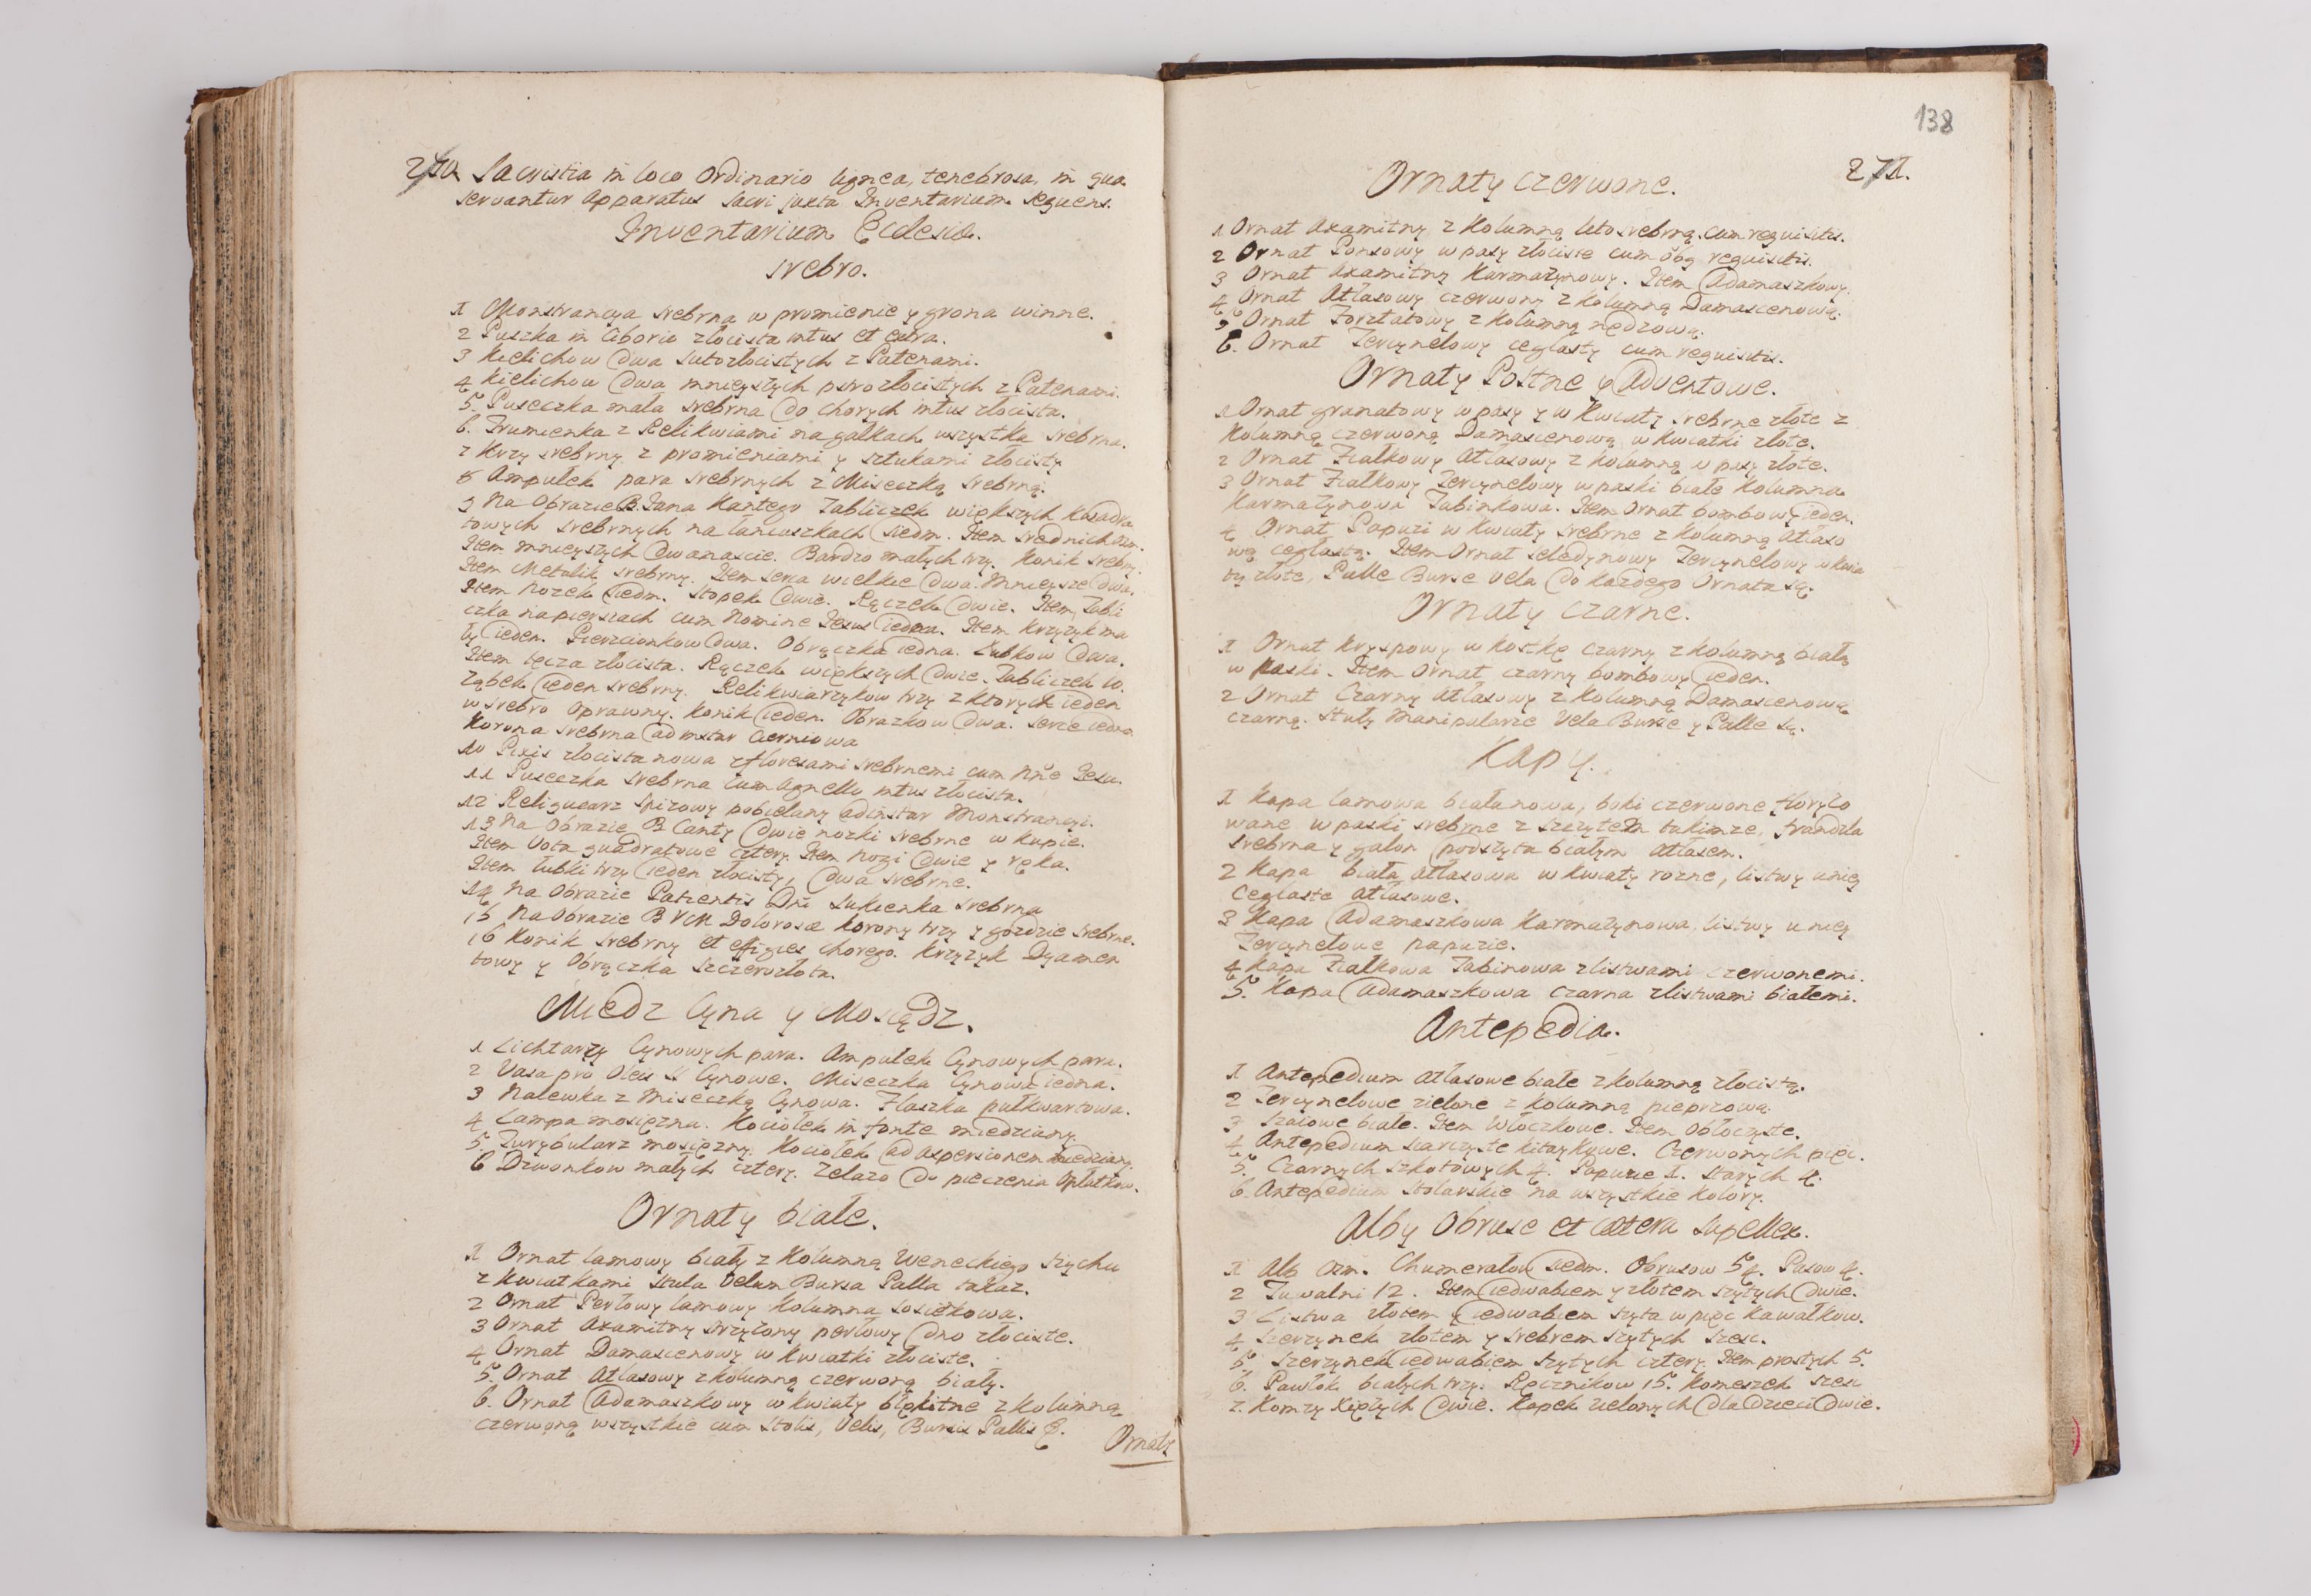 270. Sacristia in loco Ordinario lignea, tenebrosa, in qua
servantur apparatus Sacri juxta Inventarium sequens.
Inventarium Ecclesiæ.
Srebro.
1 Monstrancya srebrna w promienie y grona winne.
2 Puszka in Ciborio złocista intus et extra.
3 Kielichow dwa sutozłocistych z Patenami.
4 Kielichow dwa mnieyszych pstrozłocistych z Patenami.
5. Puseczka mała srebrna do chorych intus złocista.
6. Trumienka z Relikwiami na gałkach wszystka srebrna.
7 Krzy srebrny z promieniami y sztukami złocisty
8 Ampułek para srebrnych z Miseczką srebrną.
9 Na Obrazie B. Jana Kantego Tabliczek większych kwadra
towych srebrnych na łancuszkach siedm. Item srednich osm.
Item mnieyszych dwanascie. Bardzo małych trzy. Konik srebrny.
Item Metalik srebrny. Item serca wielkie dwa. Mnieysze dwa.
Item Nozek siedm. Stopek dwie. Rączek dwie. Item Tabli
czka na piersiach cum Nomine Jesus iedna. Item krzyzyk ma
ły ieden. Pierzcionkow dwa. Obrączka iedna. Łubkow dwa.
Item tęcza złocista. Rączek większych dwie. Tabliczek 10.
Ząbek ieden srebrny. Relikwiarzykow trzy z ktorych ieden
w srebro oprawny. Konik ieden. Obrazkow dwa. Serce iedno
Korona srebrna ad instar Cierniowa
10 Pixis złocista nowa z floresami srebrnemi cum Nñe Jesu.
11 Puseczka srebrna cum Agnello intus złocista.
12 Reliquearz spizowy pobielany ad instar Monstrancyi.
13 Na Obrazie B Canty dwie nozki srebrne w kupie.
Item Vota quadratowe cztery. Item Nogi dwie y ręka.
Item łubki trzy ieden złocisty, dwa srebrne.
14 Na Obrazie Patientis Dñi Sukienka srebrna
15 Na Obrazie B V M Dolorosæ korony trzy y gozdzie srebrne.
16 Konik srebrny et effigies chorego. Krzyzyk Dyamen
towy y Obrączka szczerozłota.
Miedz Cyna y Mosiądz.
1 Lichtarzy Cynowych para. Ampułek Cynowych para.
2 Vasa pro Oleis SS Cynowe. Miseczka Cynowa iedna.
3 Nalewka z Miseczką Cynowa. Flaszka pułkwartowa.
4 Lampa mosięzna. Kociołek in fonte miedziany.
5 Turybularz mosięzny. Kociołek ad aspersionem miedziany.
6 Dzwonkow małych cztery. Zelazo do pieczenia Opłatkow.
Ornaty białe.
1 Ornat lamowy biały z Kolumną Weneckiego sztychu
z kwiatkami Stuła Velum Bursa Palla takaz.
2 Ornat Perłowy lamowy Kolumna Łosiotkowa.
3 Ornat Axamitny strzyzony perłowy dno złociste.
4 Ornat Damascenowy w kwiatki złociste.
5. Ornat Atłasowy z kolumną czerwoną biały.
6. Ornat Adamaszkowy w kwiaty błękitne z kolumną
czerwoną wszystkie cum Stolis, Velis, Bursis Pallis &.
Ornaty
138
271.
Ornaty czerwone.
1 Ornat Axamitny z Kolumną litosrebrną. cum requisitis.
2 Ornat Ponsowy w pasy złociste cum õbg requisitis.
3 Ornat Axamitny Karmazynowy. Item Adamaszkowy.
4 Ornat Atłasowy czerwony z kolumną Damascenową.
5 Ornat Forztatowy z Kolumną nędzową.
6. Ornat Tercynelowy ceglasty cum requisitis.
Ornaty Postne y Adventowe.
1 Ornat granatowy w pasy y w kwiaty srebrne złote z
kolumną czerwoną Damascenową w kwiatki złote.
2 Ornat Fiałkowy Atłasowy z kolumną w pasy złote.
3 Ornat Fiałkowy Tercynelowy w paski białe Kolumna
Karmazynowa Tabinkowa. Item Ornat bombowy ieden.
4 Ornat Papuzi w kwiaty srebrne z kolumną Atłaso
wą ceglastą. Item Ornat seledynowy Tercynelowy w kwia
ty złote, Palle Burse Vela do kazdego Ornata są.
Ornaty czarne.
1 Ornat kryspowy w kostkę czarny z kolumną białą
w paski. Item Ornat czarny bombowy ieden.
2 Ornat Czarny Atłasowy z Kolumną Damascenową
czarną. Stuły Manipularze Vela Burse y Palle są.
Kapy.
1 Kapa lamowa biała nowa, boki czerwone floryzo
wane w paski srebrne z szczytem takimze, frandzla
srebrna y galon podszyta białym Atłasem.
2 Kapa biała Atłasowa w kwiaty rozne, listwy u niey
Ceglaste Atłasowe.
3 Kapa Adamaszkowa Karmazynowa, listwy u niey
Tercynelowe papuzie.
4 Kapa Fiałkowa Tabinowa z listwami czerwonemi.
5. Kapa Adamaszkowa czarna z listwami białemi.
Antepedia.
1 Antepedium Atłasowe białe z kolumną złocistą.
2 Tercynelowe zielone z kolumną pieprzową.
3 Szaiowe białe. Item Włoczkowe. Item Obłoczyste.
4 Antepedium siarczyste kitaykowe. Czerwonych pięc.
5. Czarnych szkotowych 4. Papuzie 1. Starych 4.
6. Antepedium Stolarskie na wszystkie kolory.
Alby Obruse et cætera Supellex.
1 Alb osm. Chumerałow siedm. Obrusow 54. Pasow 4.
2 Tuwalni 12. Item iedwabiem y złotem szytych dwie.
3 Listwa złotem y iedwabiem szyta w pięc kawałkow.
4 Szerzynek złotem y srebrem szytych szesc.
5. Szerzynek iedwabiem szytych cztery. Item prostych 5.
6. Pawłok białych trzy. Ręcznikow 15. Komeszek szesc
7. Komzy Xięzych dwie. Kapek zielonych dla dzieci dwie.